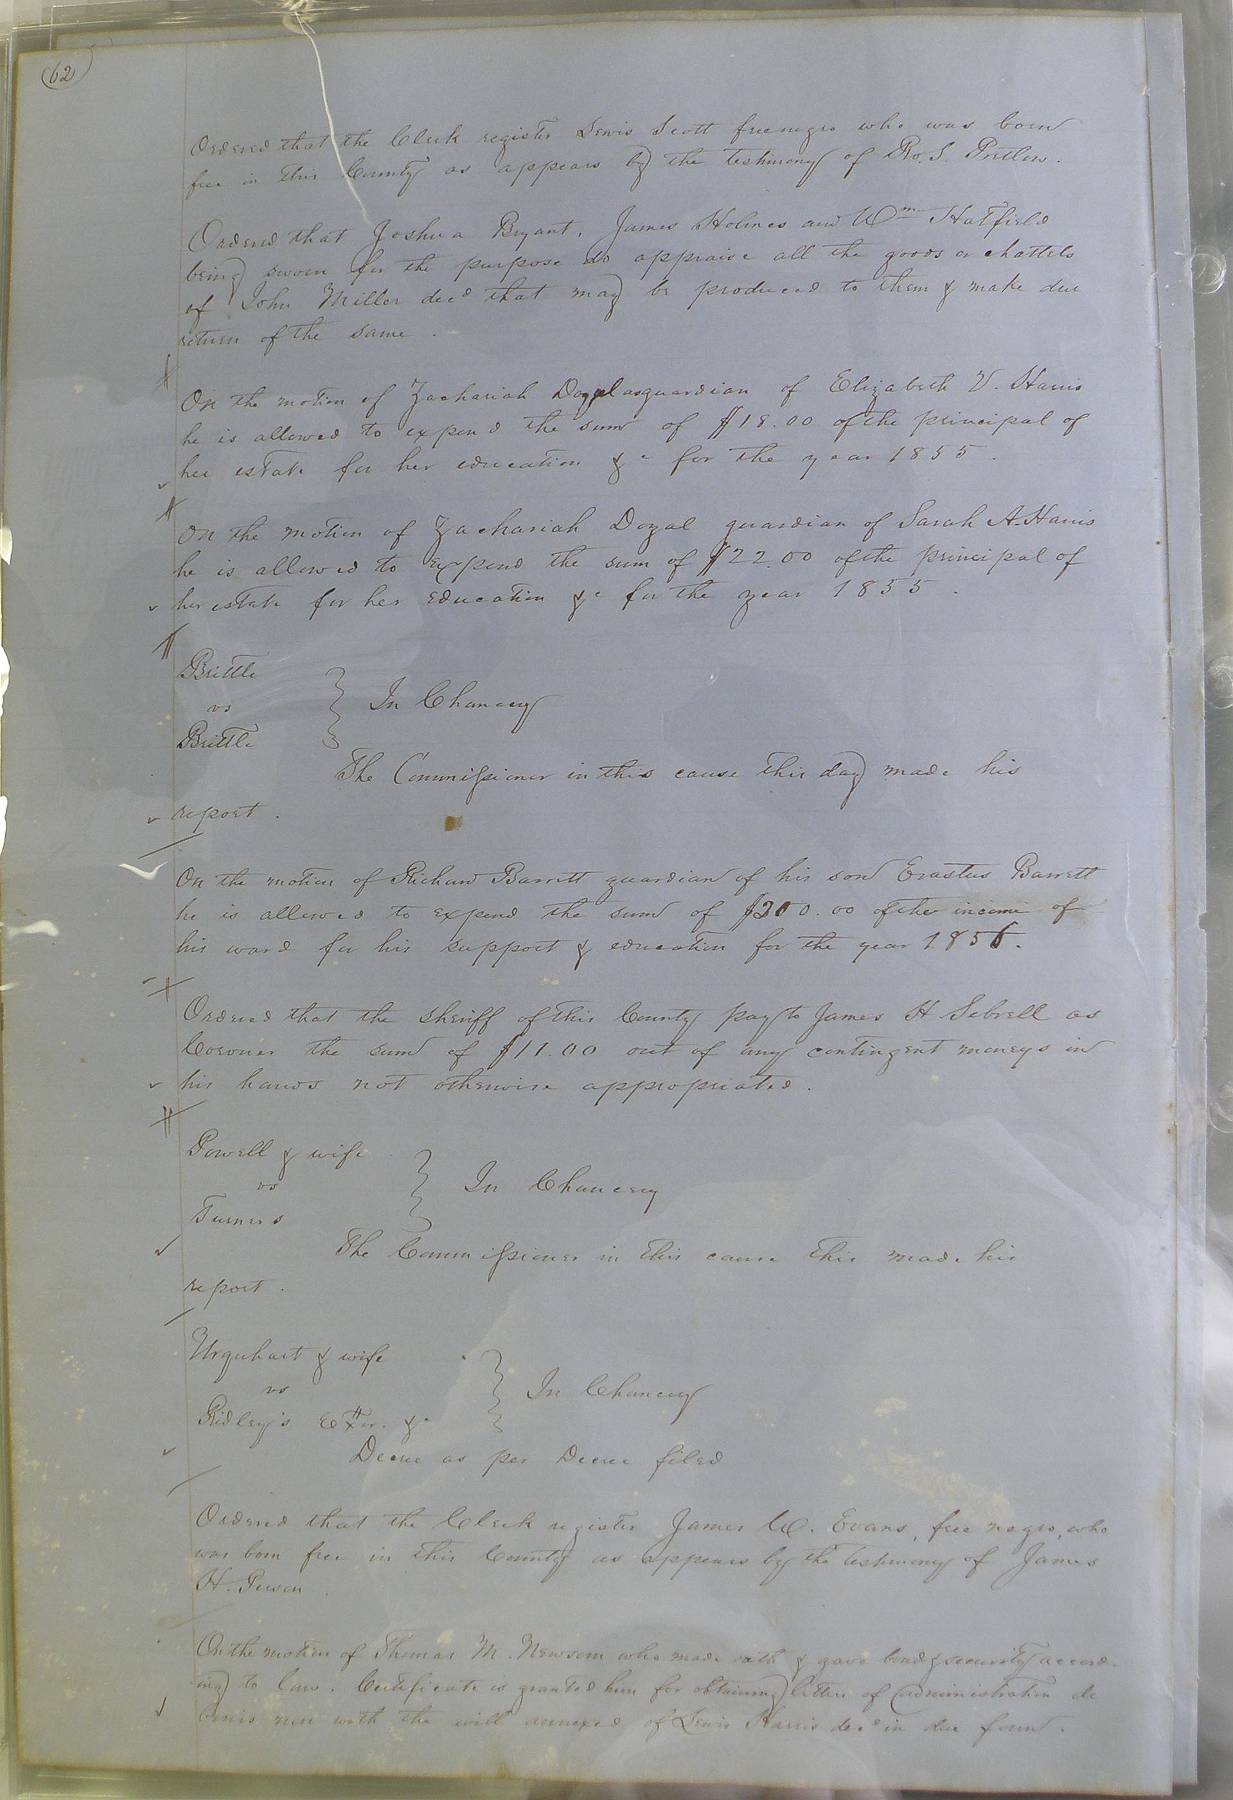 62
Ordered that the Clerk register Lewis Scott free negro who was born
free in this County as appears by the testimony of Ro. S. Pretlow.
Ordered that Joshua Bryant, James Holmes and Wm Hatfield
being sworn for the purpose do appraise all the goods or chattels
of John Miller decd that may be produced to them & make due
return of the same.
On the motion of Zachariah Doyal as guardian of Elizabeth V. Harris
he is allowed to expend the sum of $18.00 of the principal of
her estate for her education &c for the year 1855.
On the motion of Zachariah Doyal guardian of Sarah A. Harris
he is allowed to expend the sum of $22.00 of the principal of
her estate for her education &c for the year 1855.
Brittle
vs
Brittle
} In Chancery
The Commissioner in this cause this day made his
report.
On the motion of Richard Barrett guardian of his son Erastus Barrett
he is allowed to expend the sum of $200.00 of the income of
his ward for his support & education for the year 1856.
Ordered that the Sheriff of this County pay to James H Sebrell as
Coroner the sum of $11.00 out of any contingent moneys in
his hands not otherwise appropriated.
Powell & wife
vs
Turners
} In Chancery
The Commissioner in this cause this made his
report.
Urquhart & wife
vs
Ridley's Exor. &c
} In Chancery
Decree as per Decree filed
Ordered that the Clerk register James W. Evans, free negro, who
was born free in this County as appears by the testimony of James
H. Person.
On the motion of Thomas M. Newsom who made oath & gave bond & security accord-
ing to law. Certificate is granted him for obtaining letters of administration de
bonis non with the will annexed of Lewis Harris decd in due form.